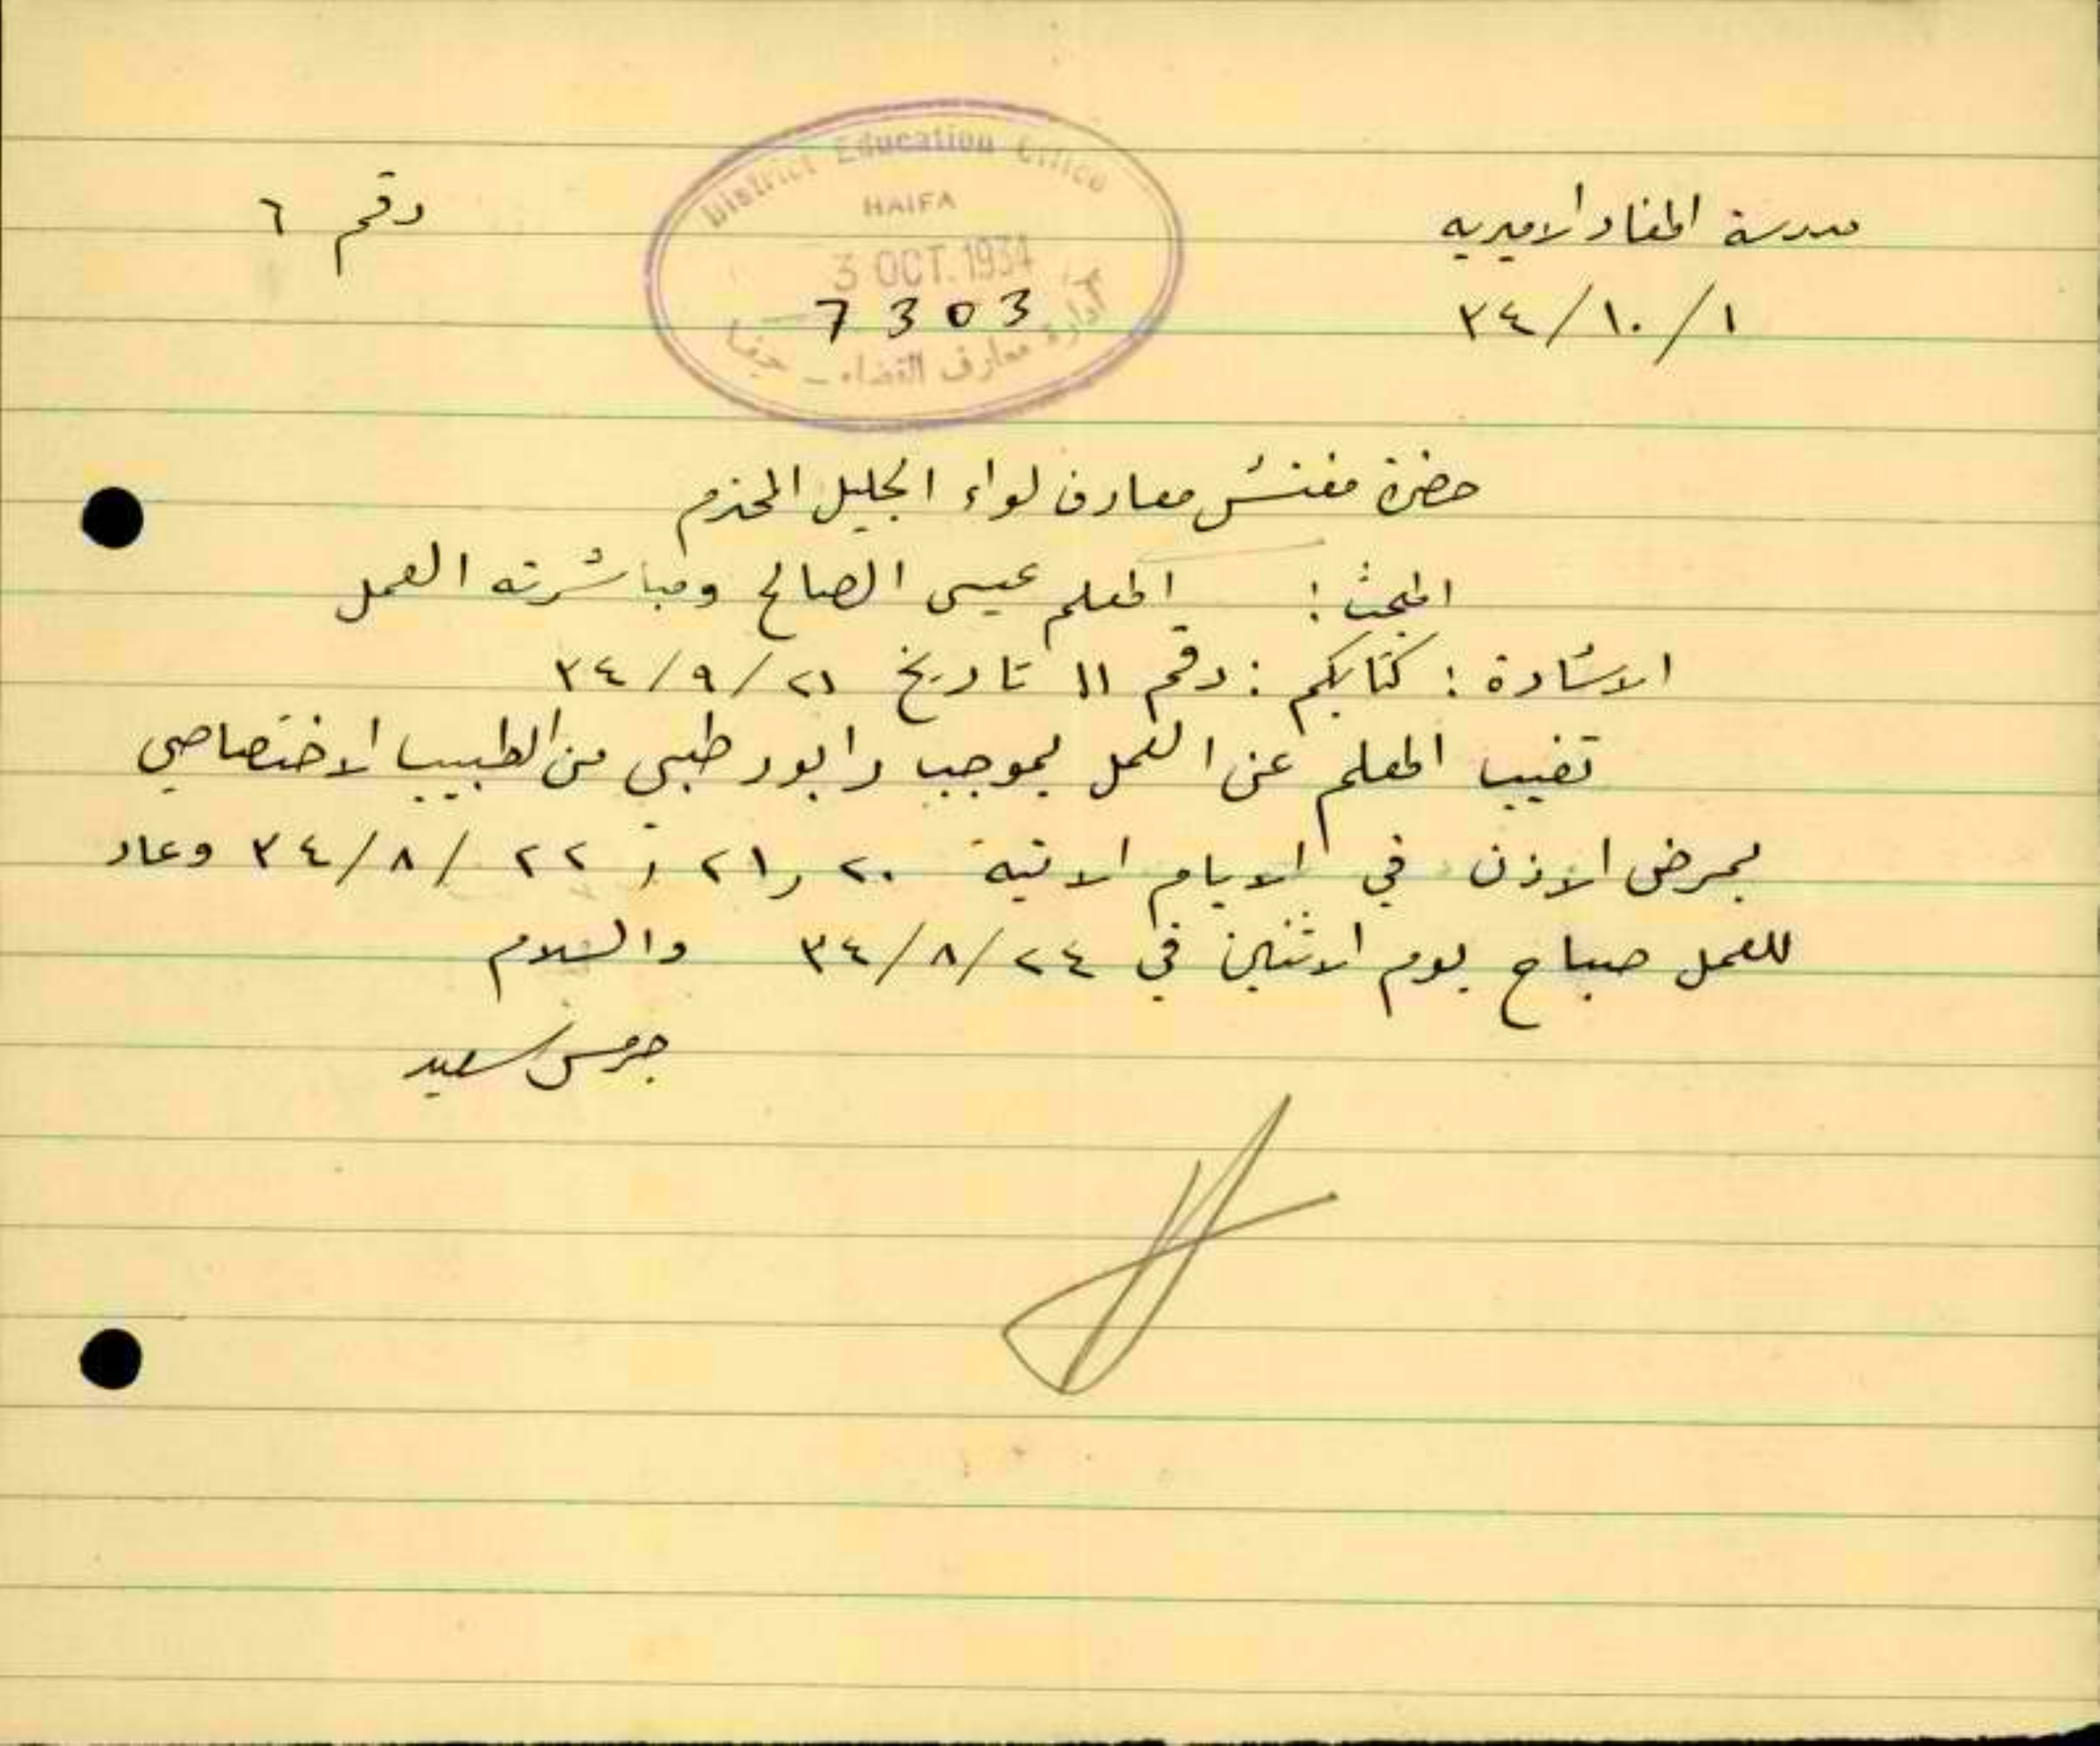 مدرسة المغار الاميريه
رقم ٦
٣٤/١٠/١
District Education Office
HAIFA
3 OCT. 1934
7303
ادارة معارف القضاء - حيفا
حضرة مفتش معارف لواء الجليل المحترم
المبحث : المعلم عيسى الصالح ومباشرته العمل
الاشارة : كتابكم : رقم ١١ تاريخ ٣٤/٩/٢١
تغيب المعلم عن العمل بموجب رابور طبي من الطبيب الاختصاصي
بمرض الاذن في الايام الاتية ٢٠ و ٢١ و ٢٢ / ٣٤/٨ وعاد
للعمل صباح يوم الاثنين في ٣٤/٨/٢٤ والسلام
جرس سعيد